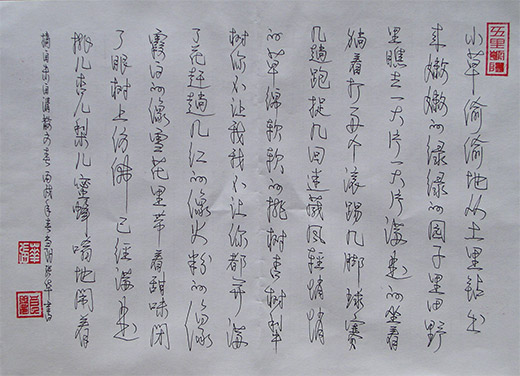 小草偷偷地从土里钻出
来嫩嫩的绿绿的园子里田野
里瞧去一大片一大片满是的坐着
躺着打两个滚踢几脚球赛
几趟跑捉几回迷藏风轻悄悄
的草绵软软的桃树杏树梨
树你不让我我不让你都开满
了花赶趟儿红的像火粉的像
霞白的像雪花里带着甜味闭
了眼树上仿佛已经满是
桃儿杏儿梨儿蜜蜂嗡地闹着
摘自朱自清散文春丙戌年